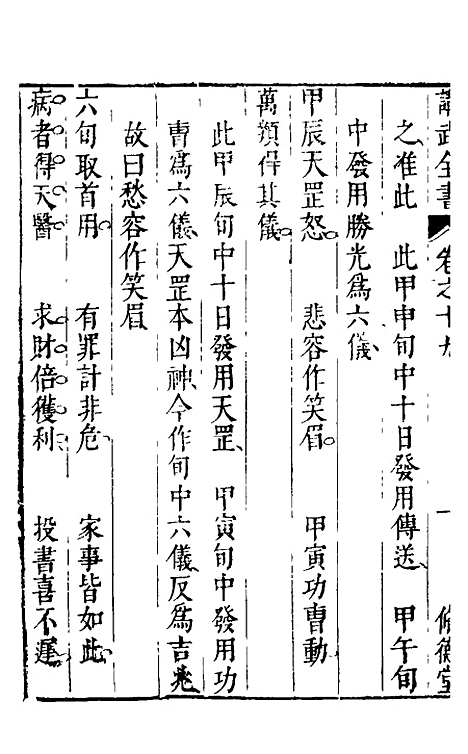 講武全書 卷之十九 一 脩衡堂
之准此 此甲申旬中十日發用傳送 甲午旬
中發用勝光爲六儀
甲辰天罡怒 悲容作笑眉 甲寅功曹動
萬類得其儀
此甲辰旬中十日發用天罡 甲寅旬中發用功
曹爲六儀天罡本凶神今作旬中六儀反爲吉兆
故曰愁容作笑眉
六旬取首用 有罪計非危 家事皆如此
病者得天醫 求財倍獲利 投書喜不遲